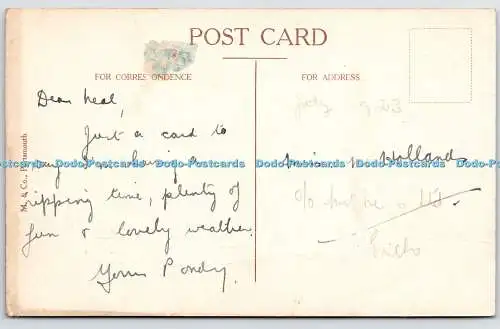 POST CARD
FOR CORRESPONDENCE
FOR ADDRESS
M. & Co., Portsmouth
Dear Neal,
Just a card to
say I'm having a
ripping time, plenty of
fun & lovely weather.
Yours Pondy.
Miss Holland
c/o
Dodo-Postcards Dodo-Postcards Dodo-Postcards Dodo-Postcards Dodo-Postcards Dodo-Postcards